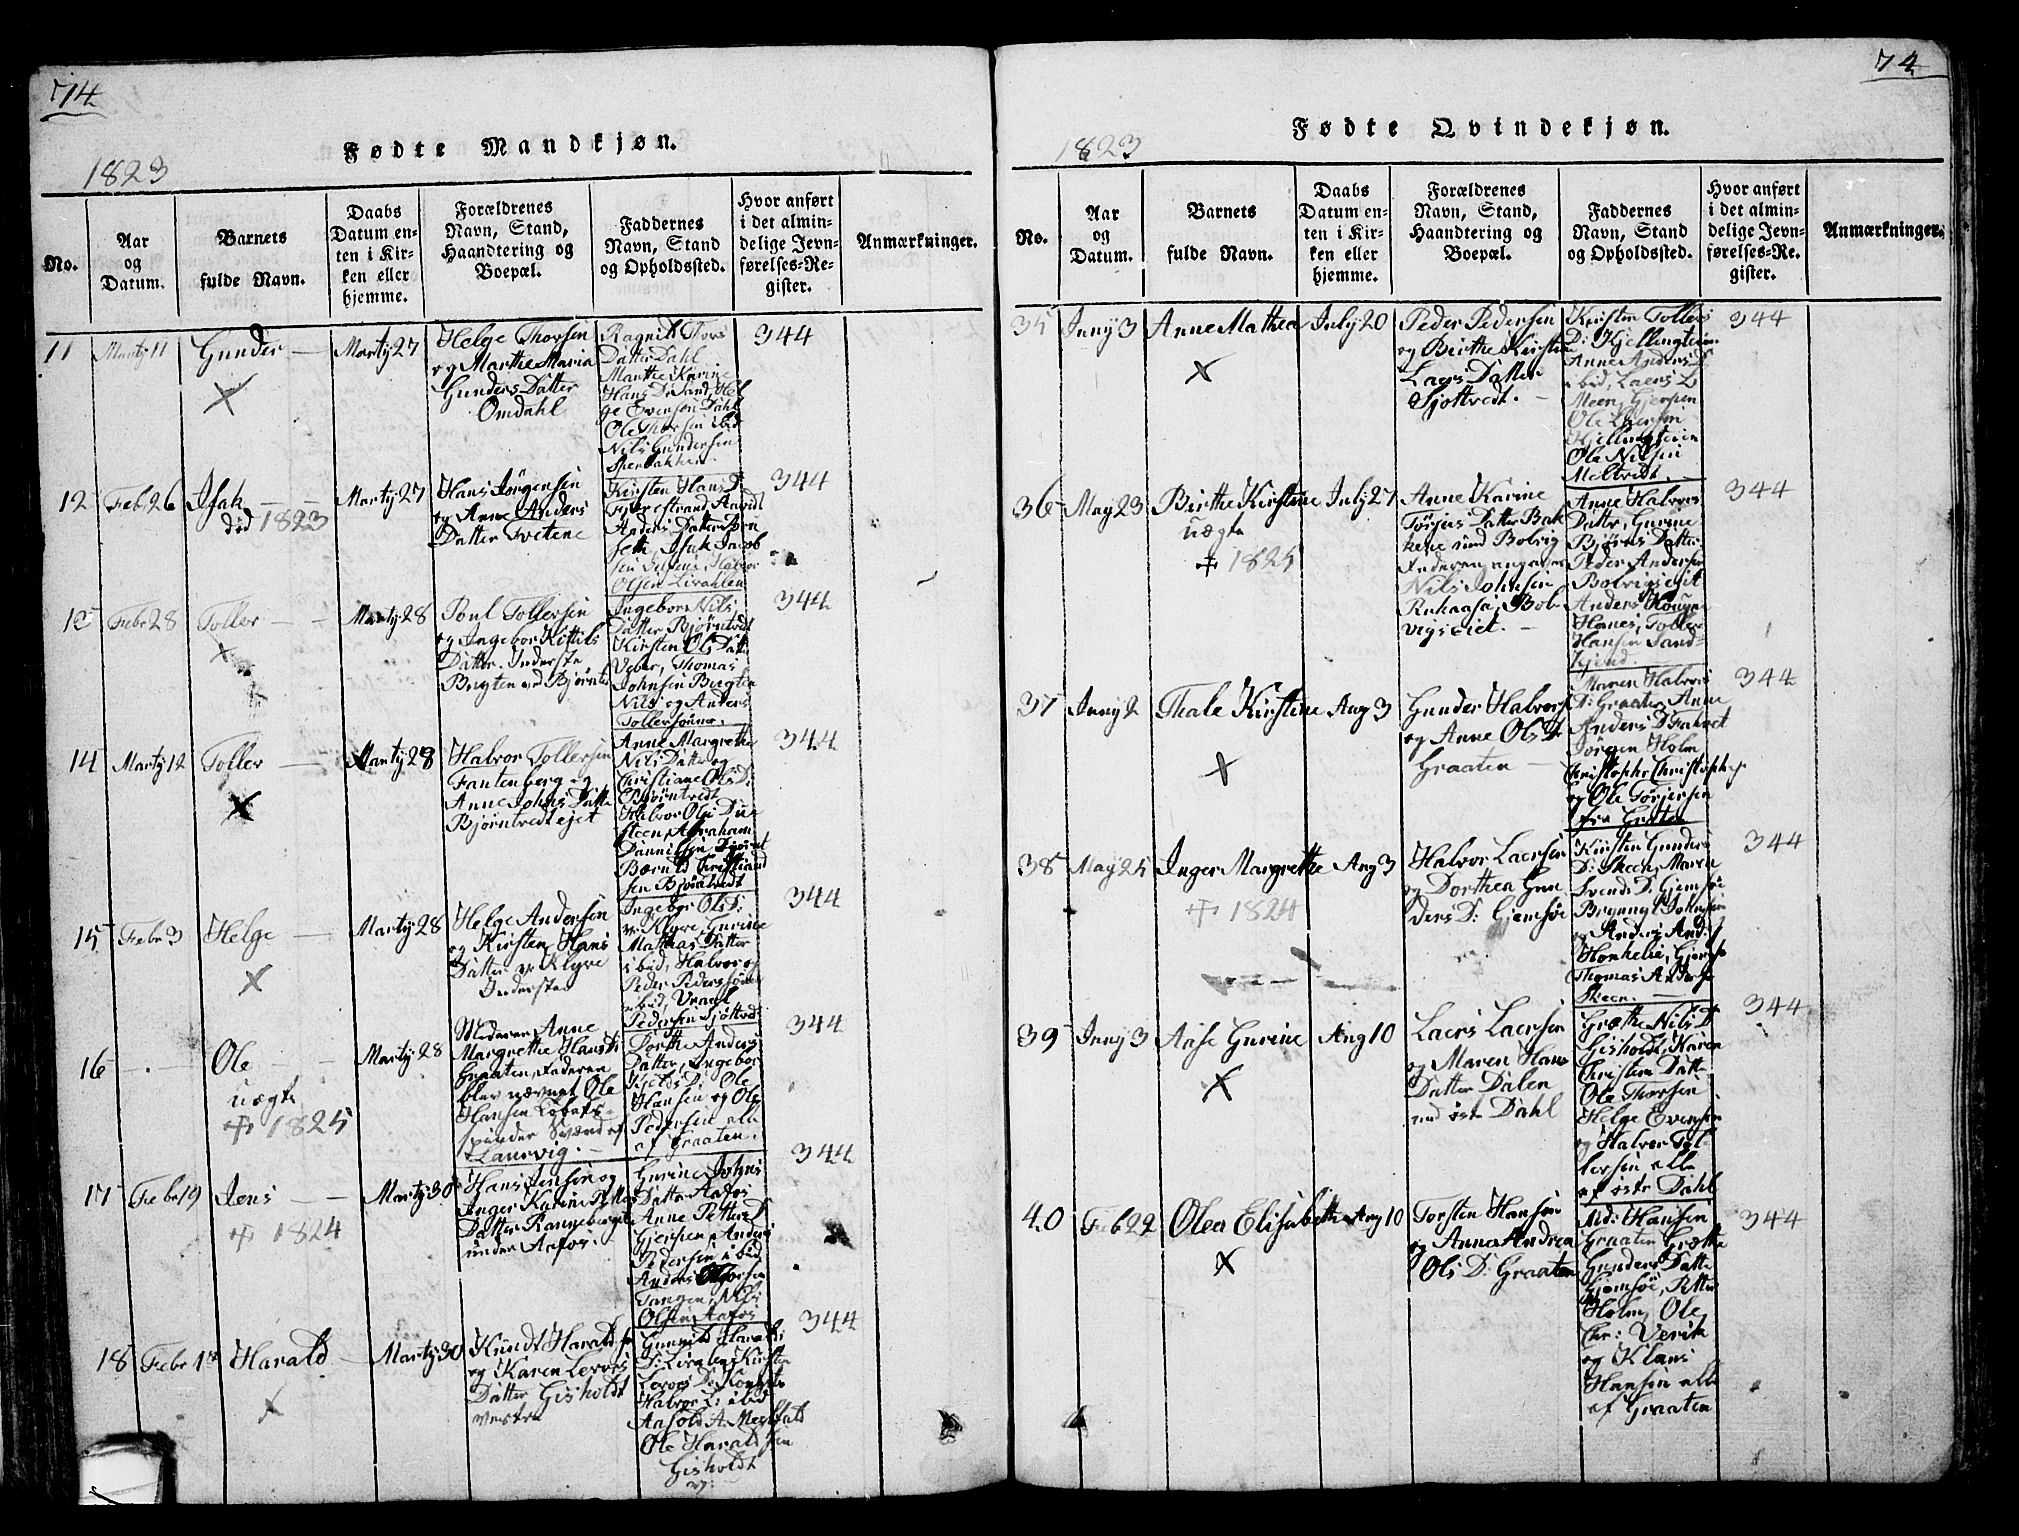 74
Fødte Mandkjøn.
1823
No.
Aar
og
Datum.
Barnets
fulde Navn.
Daabs
Datum en-
ten i Kir-
ken eller
hjemme.
Forældrenes
Navn, Stand,
Haandtering og
Boepæl.
Faddernes
Navn, Stand
og Opholdssted.
Hvor anført
i det almin-
delige Jevn-
førelses-Re-
gister.
Anmærkninger.
11
Martij 11
Gunder
Martij 27
Helge Thorsen
og Marthe Maria
Gunders Datter
Omdahl
Ragnild Thors
Datter Dahl
Marthe Karine
Hans D: Sand, Hel
ge Evensen Dahl
Ole Thorsen ibid
Nils Gundersen
344
12
Febr 26
Isak
död 1823
Martij 27
Hans Jørgensen
og Anne Anders
Datter Tvetene
Kirsten Hans D:
Anders Datter
Isak Jacob
sen Halvor
Olsen
344
13
Febr 28
Toller
Martij 28
Poul Tollersen
og Ingebor Kittils
Datter. Inderste
Brygten ved Bjørnte
Ingebor Nils
Datter Bjørntvedt
Kirsten Ols Datt
Veber, Thomas
Johnsen Brygten
Nils og Anders
Tollersønner.
344
14
Martij 12
Toller
Martij 28
Halvor Tollersen
Fantenberg og
Anne Johns Datte
Bjørntvedtejet
Anne Margrethe
Nils Datter og
Christiane Ols D:
Bjørntvedt
Halvor Ols Du
steen, Abraham
Dannilsen
Bærnt Christiand
sen Bjørntvedt
344
15
Febr 3
Helge
Martij 28
Helge Andersen
og Kirsten Hans
Datter v: Klyve
Inderster
Ingebor Ols D:
v: Klyve, Gurine
Mathias Datter
ibid, Halvor og
Peder Pederssønner
ibid,
Pedersen Sjøttvedt
344
16
Ole
uægte
1825
Martij 28
Moderen Anne
Margrethe Hans D
Graaten, Faderen
blev nævnet Ole
Hansen
Laurvig.
Dorthe Anders
Datter, Ingebor
Kjelds D: Ole
Hansen og Ole
Pedersen alle
af Graaten.
344
17
Febr 19
Jens
1824
Martij 30
Hans Jensen og
Inger Karine Petters
Datter Ranneberget
under Aafos.
Gurine Johns
Datter Aafos
Anne Petters D
Gjersen Anders
Pedersen ibid
Anders Thorsen
Tangen, Nils
Olsen Aafos
344
18
Febr 1ste
Harald
Martij 30
Knudt Haralds
og Karen Levors
Datter Gisholdt
vestre
Gunnild Haralds
D: Kirsten
Levors D:
Halvor L: ibid
Aasold A:
Ole Haraldsen
Gisholdt
v:
344
74
Fødte Qvindekjøn.
1823
No.
Aar
og
Datum.
Barnets
fulde Navn.
Daabs
Datum en-
ten i Kir-
ken eller
hjemme.
Forældrenes
Navn, Stand,
Haandtering og
Boepæl.
Faddernes
Navn, Stand
og Opholdssted.
Hvor anført
i det almin-
delige Jevn-
førelses-Re-
gister.
Anmærkninger.
35
Juny 3
Anne Mathea
July 20
Peder Pedersen
og Birthe Kirstine
Laers Datter
Sjottvedt.
Kirsten Tollers
D: Kjellingteien
Anne Anders D
ibid, Laers L:
Meen, Gjersen
Ole Laersen
Kjellingteien
Ole Nilsen
Meltvedt.
344
36
May 23
Birthe Kirstine
uægte
1825
July 27
Anne Karine
Torjus Datter Bak
kene und Bolvig
Faderen angaves
Nils Johnsen
Bol
vigseiet.
Anne Halvors
Datter, Gurine
Bjørns Datter
Peder Andersen
Bolvigseiet
Anders
Hanes, Toller
Hansen Sand-
344
37
Juny 2
Thale Kirstine
Aug 3
Gunder Halvors
og Anne Ols D
Graaten
Maren Halvors
D: Graaten Anne
Anders D
Jørgen Holm
Christopher Christoph
og Ole Torjersen
fra Graaten
344
38
May 25
Inger Margrethe
1824
Aug 3
Halvor Laersen
og Dorthea Gun
ders D: Gjemsøe
Kirsten Gunders
D: Skeen, Maren
Svends D: Gjemsøe
Brynnyl Johnsen
og Anders And:
Honkelie, Gjemsø
Thomas Anders
Skeen.
344
39
Juny 3
Aase Gurine
Aug 10
Laers Laersen
og Maren Hans
Datter Dalen
und østr Dahl
Græthe Nils D
Gisholdt, Karen
Christens Datte
Ole Thorsen
Helge Evensen
og Halvor Tol
lersen alle
af østr Dahl
344
40
Feb 22
Olea Elisabeth
Aug 10
Torsten Hansen
og Anne Andrea
Ols D: Graaten
Md: Hansen
Graaten Græthe
Gunders Datte
Gjemsøe, Petter
Holm, Ole
Chr: Verik
og Klaus
Hansen alle
af Graaten
344